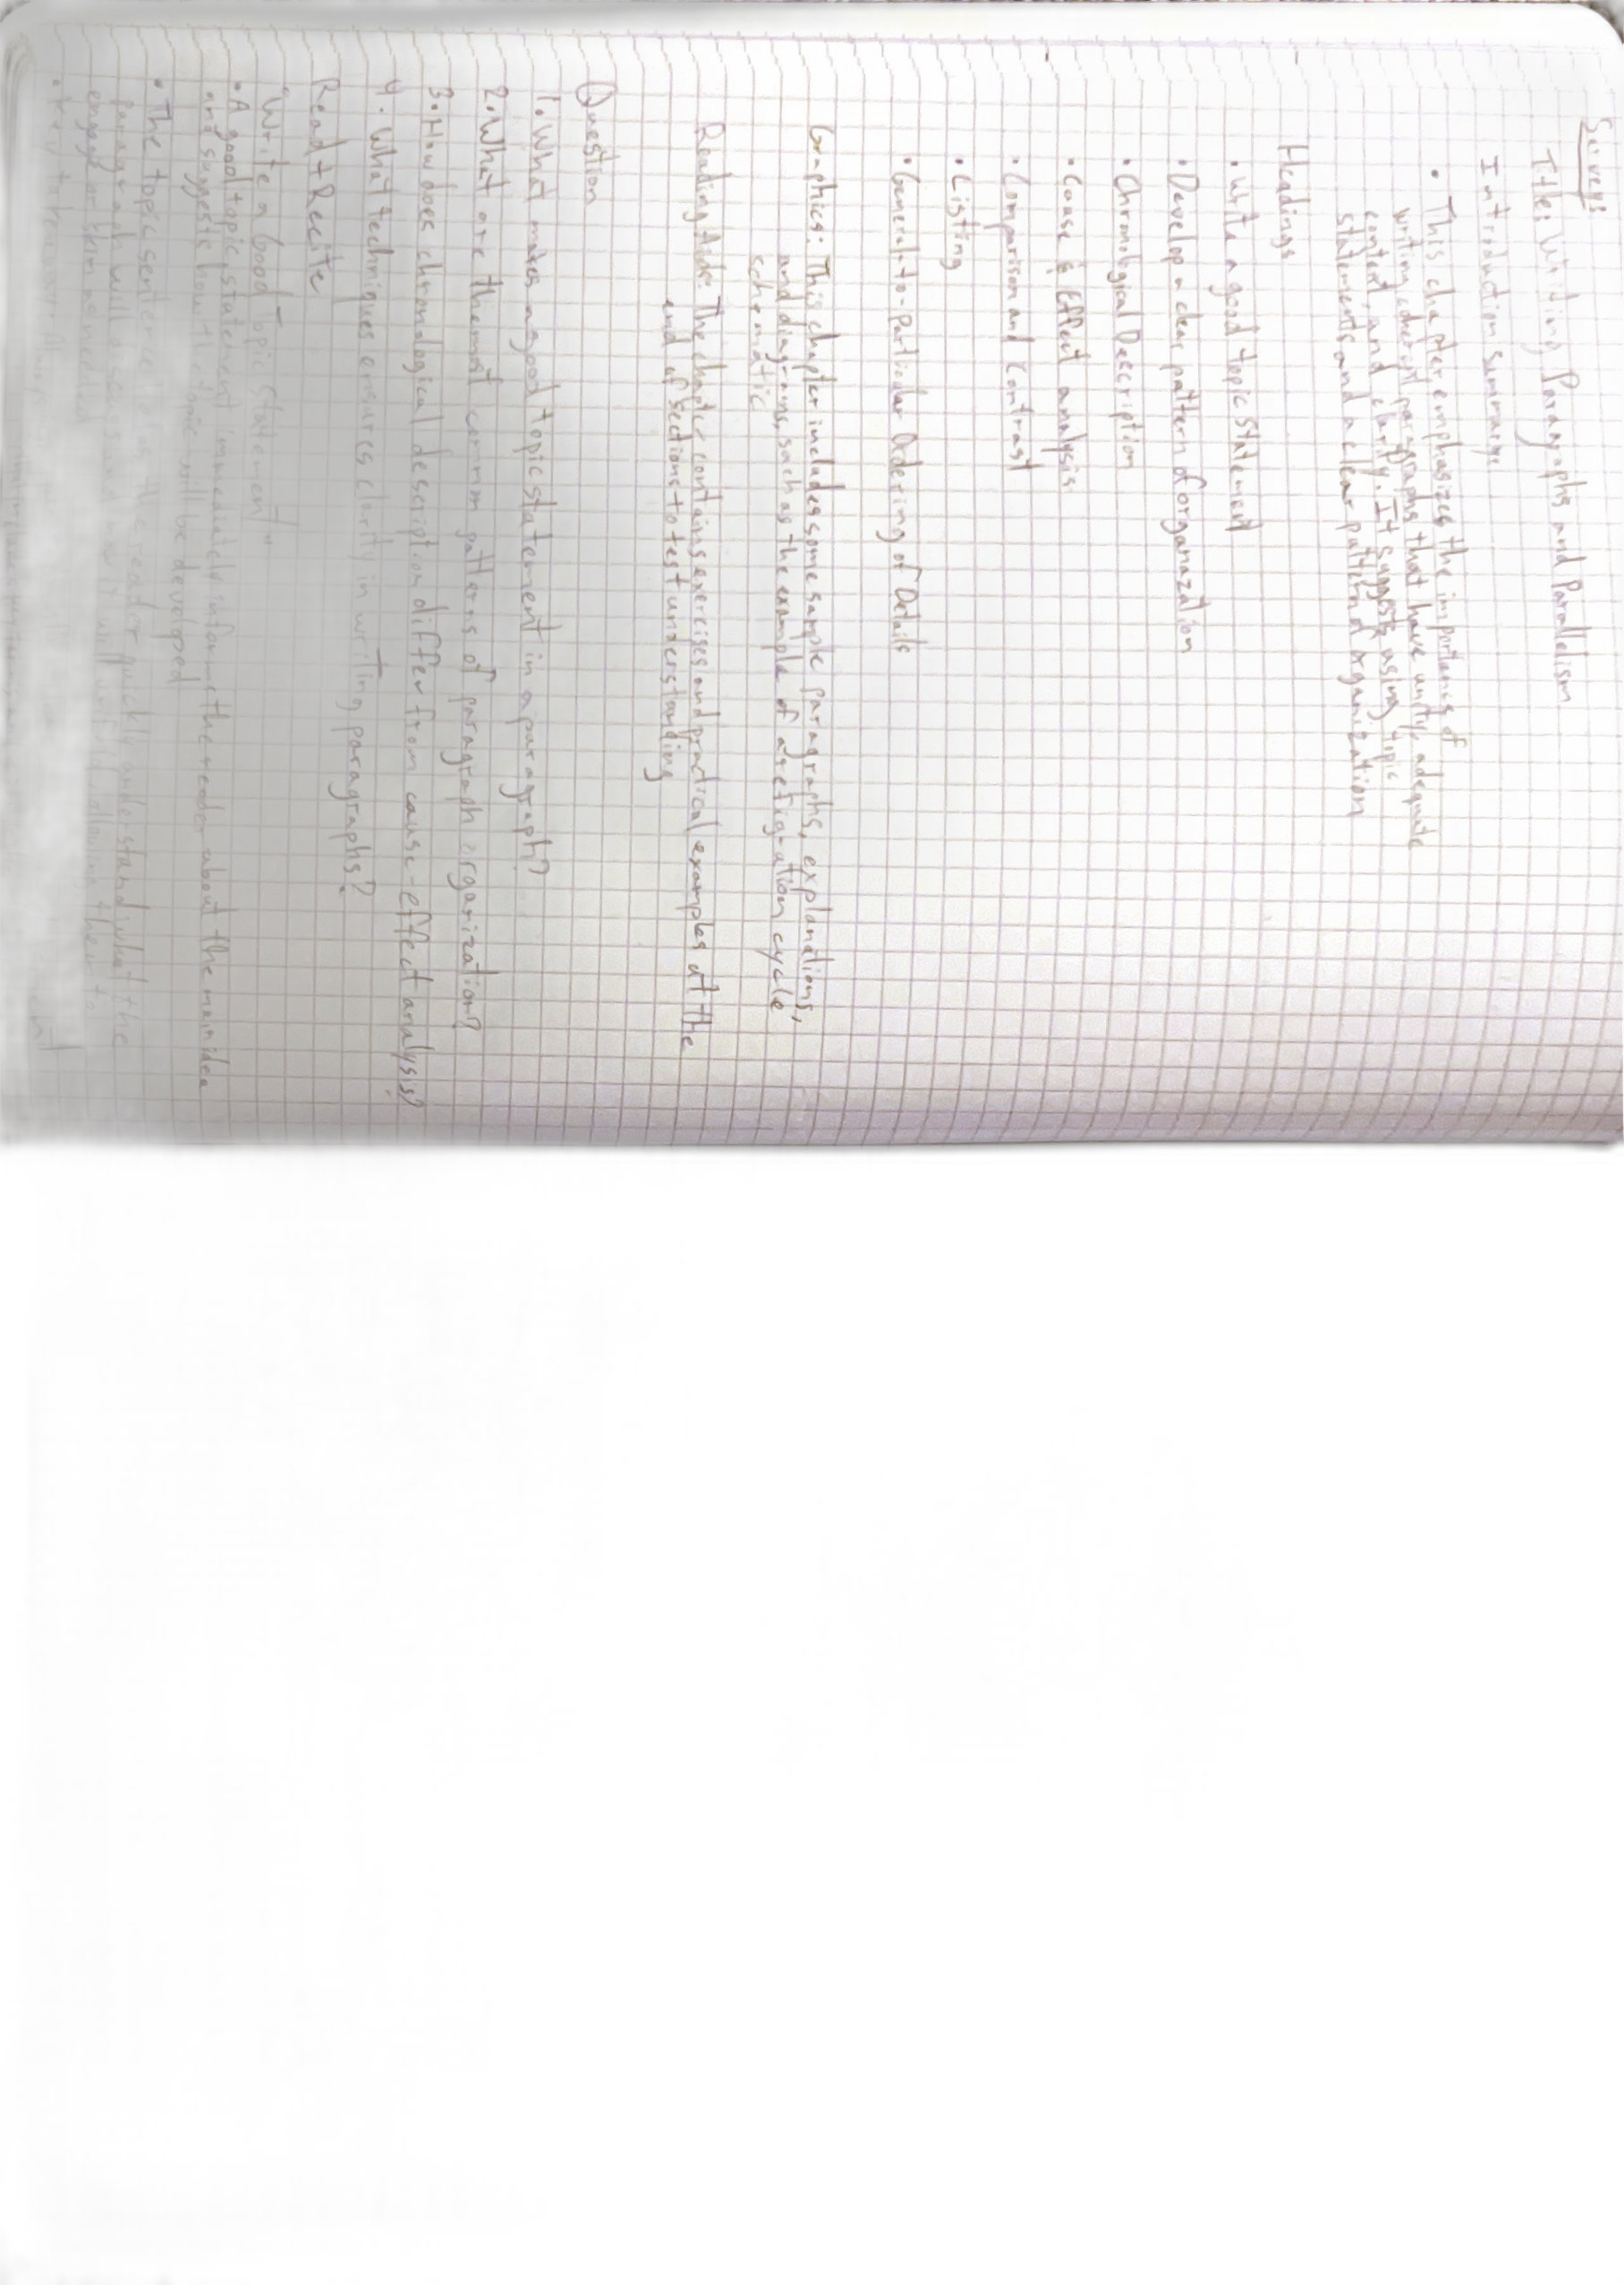 Survey:
Title: Writing Paragraphs and Parallelism
Introduction summary
• This chapter emphasizes the importance of
writing coherent paragraphs that have unity, adequate
content, and clarity. It suggests using topic
statements and a clear pattern of organization
Headings
• Write a good topic statement
• Develop a clear pattern of organazation
• Chronological Description
• Cause & Effect analysis
• Comparison and Contrast
• Listing
• General-to-Particular Ordering of Details
Graphics: This chapter includes some sample paragraphs, explanations,
and diagrams, such as the example of a refrigeration cycle
schematic
Reading Aids: The chapter contains exercises and practical examples at the
end of sections to test understanding
Question
1. What makes a good topic statement in a paragraph?
2. What are the most common patterns of paragraph organization?
3. How does chronological description differ from cause-effect analysis?
4. What techniques ensures clarity in writing paragraphs?
Read + Recite
"Write a Good Topic Statement"
• A good topic statement immediately informs the reader about the main idea
and suggests how the topic will be developed
• The topic sentence the reader quickly understand what the
paragraph will and how it will allowing them to
engage or skim as needed
• Key takeaway: